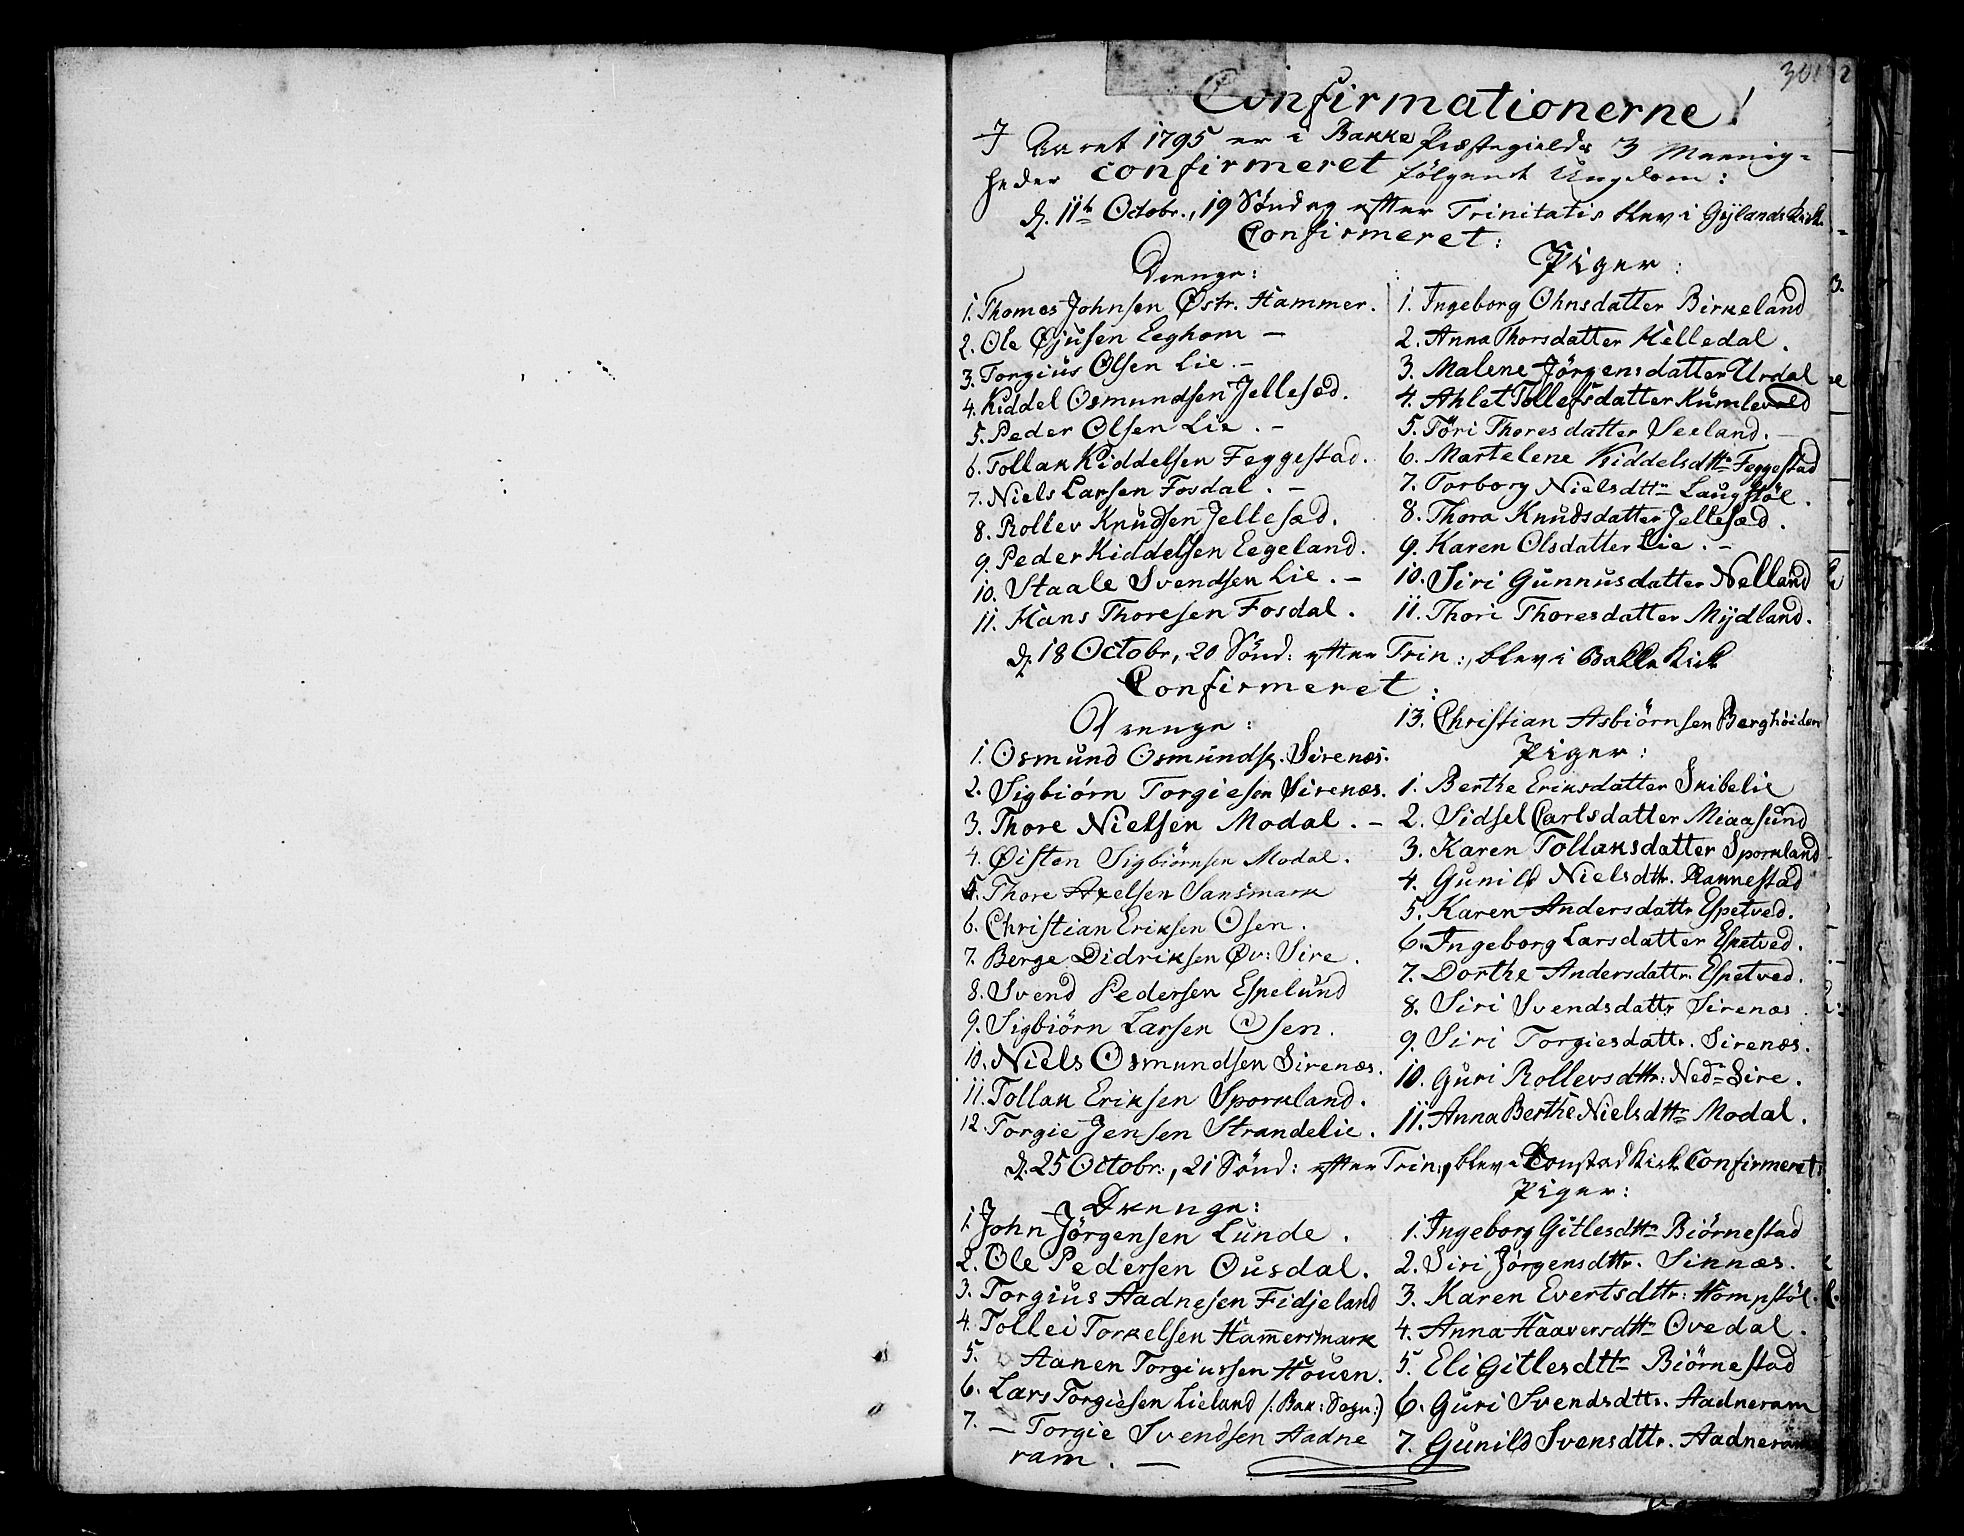 301
Confirmationerne!
J Aaret 1795 er i Bakke Præstegields 3 Meenig-
heder confirmeret følgende Ungdom:
d. 11te Octobr., 19 Søndag efter Trinitatis blev i Gylands Kirk
Confirmeret:
Drenge:
1. Thomes Johnsen Østr. Hammer.
2. Ole Øjusen Eeghom –
3. Torgius Olsen Lie. –
4. Kiddel Osmundsen Jellesæd.
5. Peder Olsen Lie. –
6. Tollak Kiddelsen Feggestad.
7. Niels Larsen Fosdal. –
8. Rollev Knudsen Jellesæd.
9. Peder Kiddelsen Eegeland.
10. Staale Svendsen Lie. –
11. Hans Thoresen Fosdal.
Piger:
1. Ingeborg Ohnsdatter Birkeland
2. Anna Thorsdatter Helledal.
3. Malene Jörgensdatter Urdal
4. Ahlet Tollefsdatter Kumleved
5. Töri Thoresdatter Seeland. –
6. Martelene Kiddelsdttr Feggestad
7. Torborg Nielsdttr Laugstöl.
8. Thora Knudsdatter Jellesæd.
9. Karen Olsdatter Lie. –
10. Siri Gunnusdatter Nelland
11. Thori Thoresdatter Mydland.
d. 18 Octobr, 20 Sönd: efter Trin:, blev i Bakke Kirk
Confirmeret:
Drenge:
1. Osmund Osmunds. Sirenæs.
2. Sigbiörn Torgiesen Sirenæs.
3. Thore Nielsen Modal. –
4. Øisten Sigbiörnsen Modal.
5. Thore Axelsen Sansmark
6. Christian Eriksen Osen.
7. Berge Didriksen Øv: Sire.
8. Svend Pedersen Espelund
9. Sigbiörn Larsen Osen.
10. Niels Osmundsen Sirenæs.
11. Tollak Eriksen Sporkland.
12. Torgie Jensen Strandelie.
13. Christian Asbiörnsen Berghöiden
Piger:
1. Berthe Eriksdatter Skibelie
2. Sidsel Carlsdatter Miaasund
3. Karen Tollaksdatter Sporkland
4. Gunild Nielsdttr. Rannestad
5. Karen Andersdattr Espetved.
6. Ingeborg Larsdatter Espetved.
7. Dorthe Andersdattr. Espetved.
8. Siri Svendsdattr Sirenæs
9. Siri Torgiesdattr. Sirenæs.
10. Guri Rollevsdttr: Nedr Sire.
11. Anna Berthe Nielsdttr Modal.
d. 25 Octobr:, 21 Sönd: efter Trin:, blev i Tonstad Kirk Confirmeret:
Drenge:
1. John Jörgensen Lunde.
2. Ole Pedersen Ousdal.
3. Torgius Aadnesen Fidjeland
4. Tollei Torkelsen Hammersmark
5. Aanen Torgiussen Houen.
6. Lars Torgiesen Lieland /: Bak: Sogn:)
7. – Torgie Svendsen Aadne
ram. –
Piger:
1. Ingeborg Gitlesdttr Biörnestad
2. Siri Jörgensdttr. Sinnæs.
3. Karen Evertsdttr: Hompstöl.
4. Anna Haaversdttr Ovedal.
5. Eli Gitlesdttr Biörnestad
6. Guri Svendsdttr. Aadneram
7. Gunild Svensdttr. Aadneram